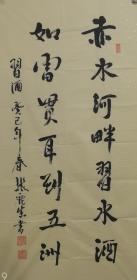 赤水河畔習水酒
如雷贯耳到五洲
習酒 癸巳年春 张